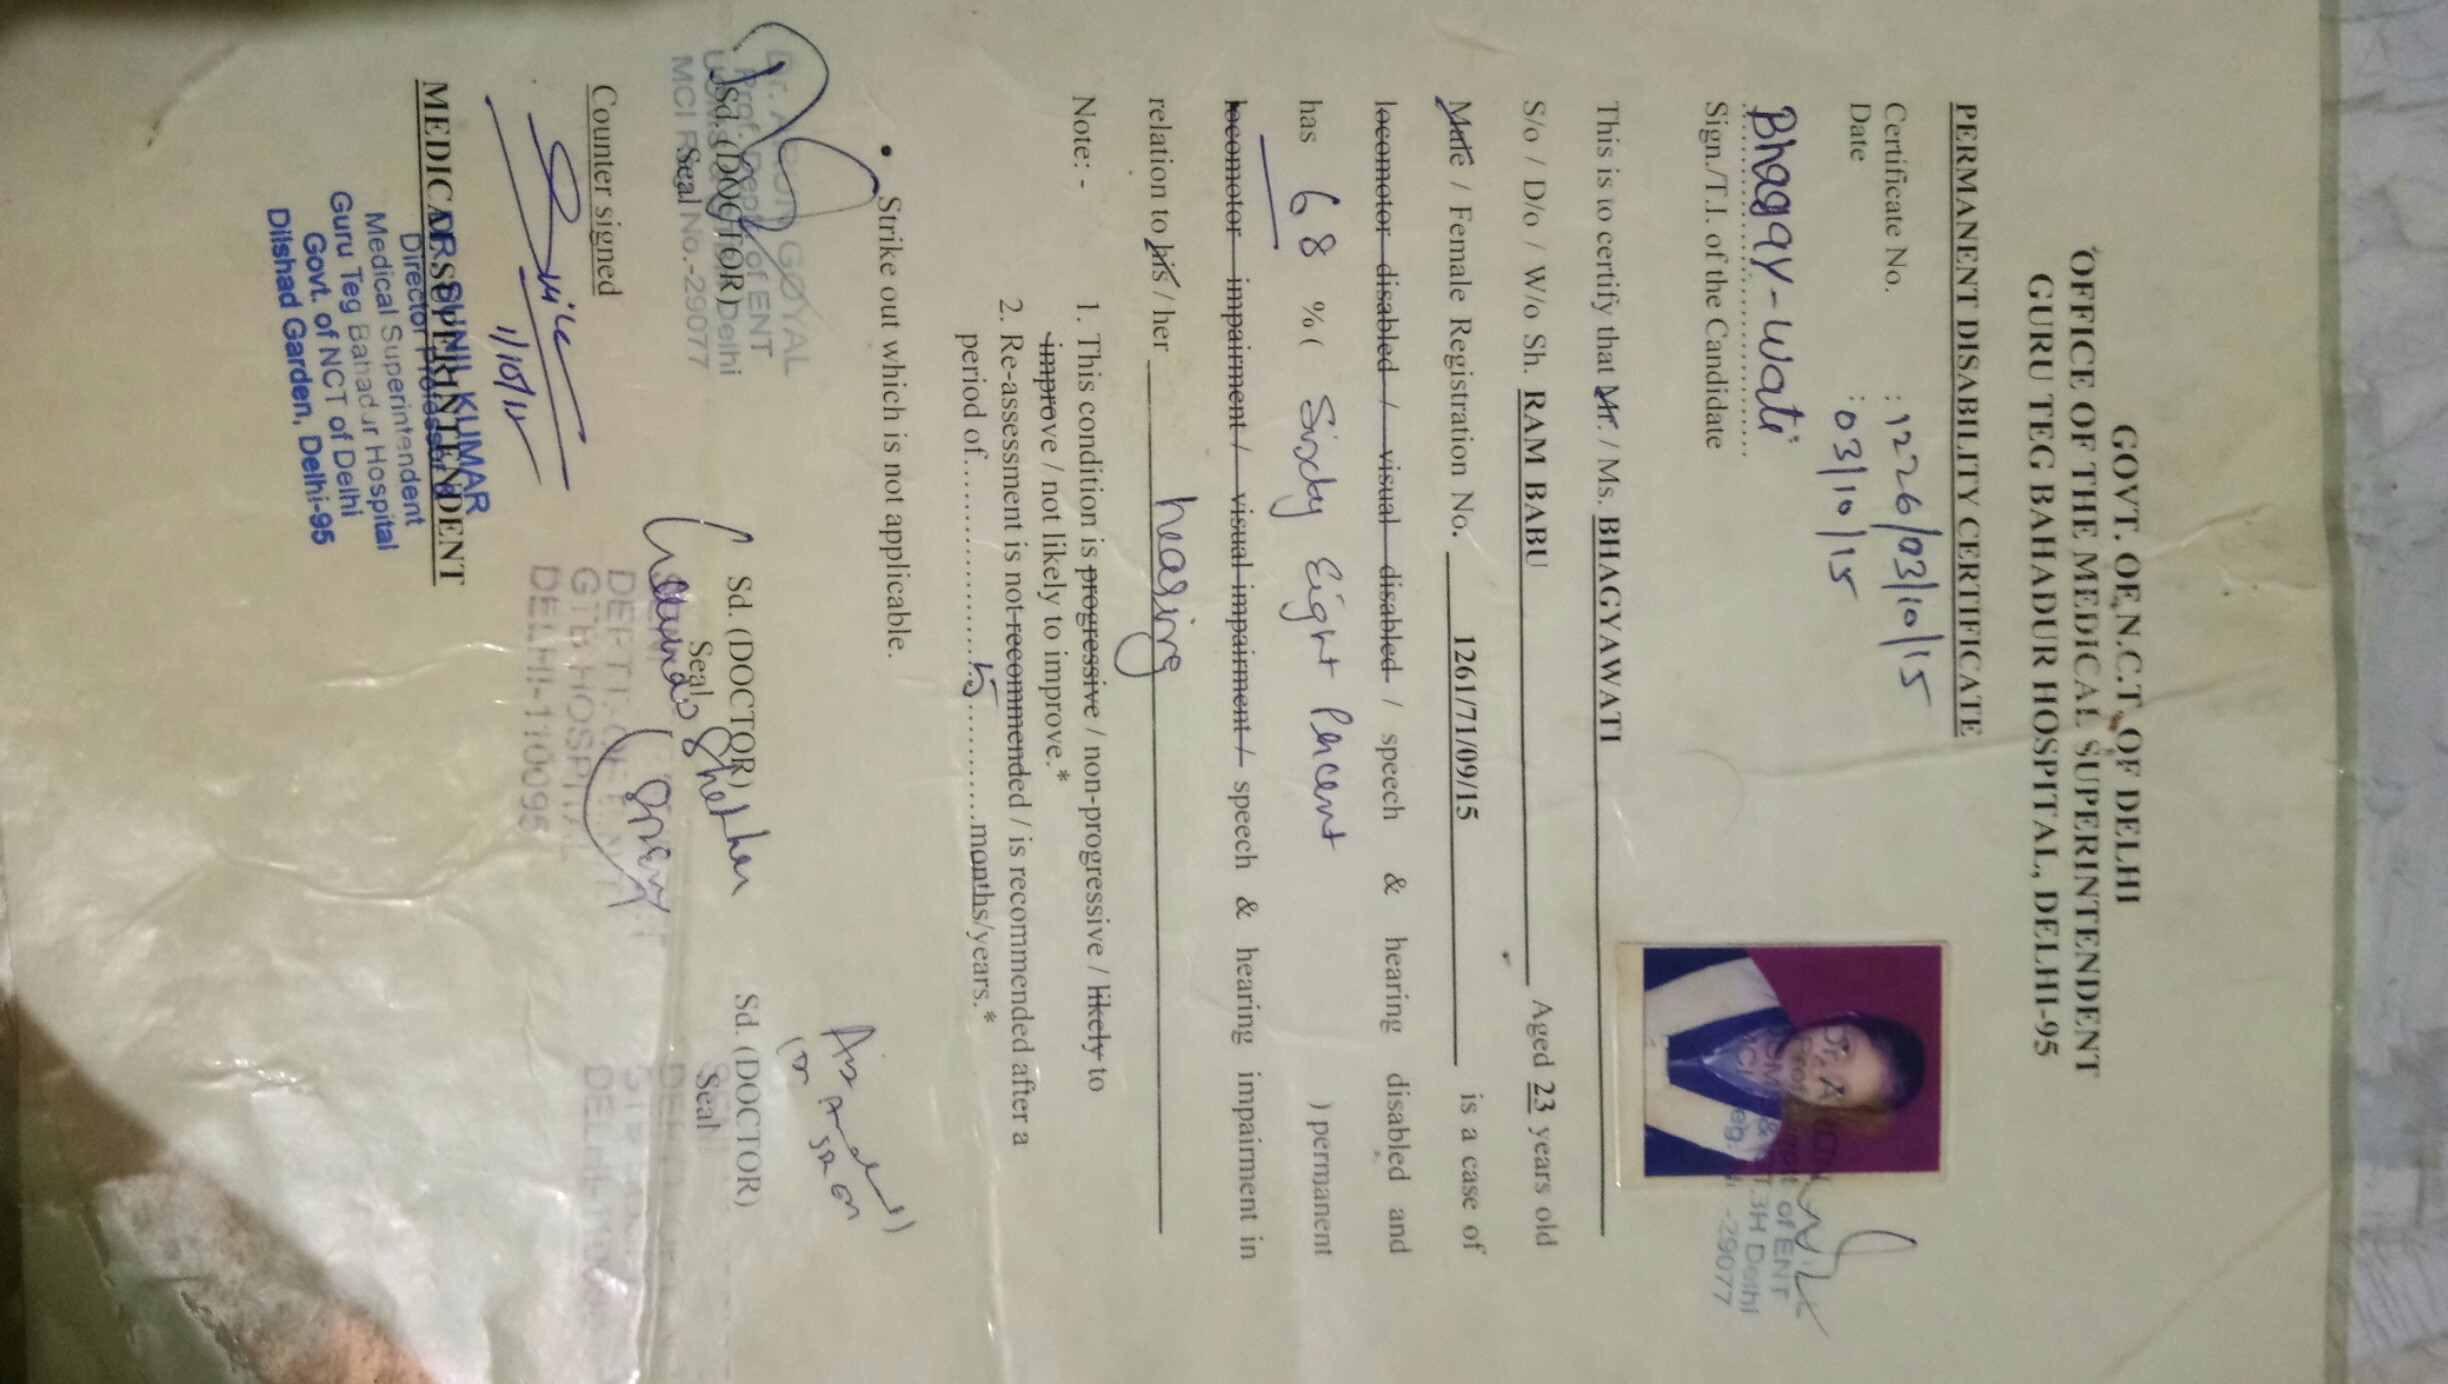 GOVT. OF N.C.T. OF DELHI
OFFICE OF THE MEDICAL SUPERINTENDENT
GURU TEG BAHADUR HOSPITAL, DELHI-95
PERMANENT DISABILITY CERTIFICATE
Certificate No. : 1226/03/10/15
Date : 03/10/15
Bhagay-wati
Sign./T.I. of the Candidate
This is to certify that Mr. / Ms. BHAGYAWATI
S/o / D/o / W/o Sh. RAM BABU Aged 23 years old
Male / Female Registration No. 1261/71/09/15 is a case of
locomotor disabled / visual disabled / speech & hearing disabled and
has 68 % ( Sixty Eight Percent ) permanent
locomotor impairment / visual impairment / speech & hearing impairment in
relation to his / her hearing
Note: - 1. This condition is progressive / non-progressive / likely to
improve / not likely to improve.*
2. Re-assessment is not recommended / is recommended after a
period of 5 months/years.*
• Strike out which is not applicable.
Sd. (DOCTOR) Sd. (DOCTOR) Sd. (DOCTOR)
Seal Seal Seal
GOYAL
of ENT
Delhi
MCI No.-29077
DEPTT. OF
GTB HOSPITAL
DELHI-110095
of ENT
Delhi
-29077
Counter signed
MEDICAL SUPERINTENDENT
DR. SUNIL KUMAR
Director Professor &
Medical Superintendent
Guru Teg Bahadur Hospital
Govt. of NCT of Delhi
Dilshad Garden, Delhi-95